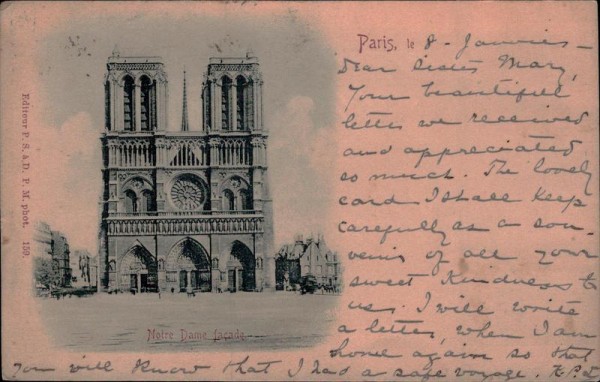 Paris, le 8 - Janvier -
Dear Sister Mary,
Your beautiful
letter we received
and appreciated
so much. The lovely
card I shall keep
carefully as a sou-
venir of all your
sweet kindness to
us. I will write
a letter, when I am
home again so that
you will know that I had a safe voyage.
Notre Dame façade
Editeur P. S. à D. P. M. phot. 159.